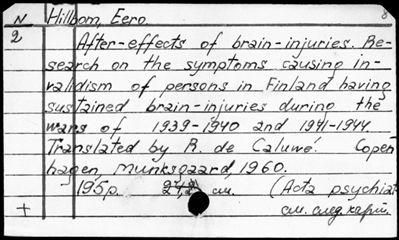 N Hillbom, Eero. 8
2 After-effects of brain-injuries. Re-
search on the symptoms causing in-
validism of persons in Finland having
sustained brain-injuries during the
wars of 1939-1940 and 1941-1944.
Translated by R. de Caluwé. Copen
hagen, Munksgaard, 1960.
195p. 24,2 см. (Acta psychiat-
+ см. след. карт.